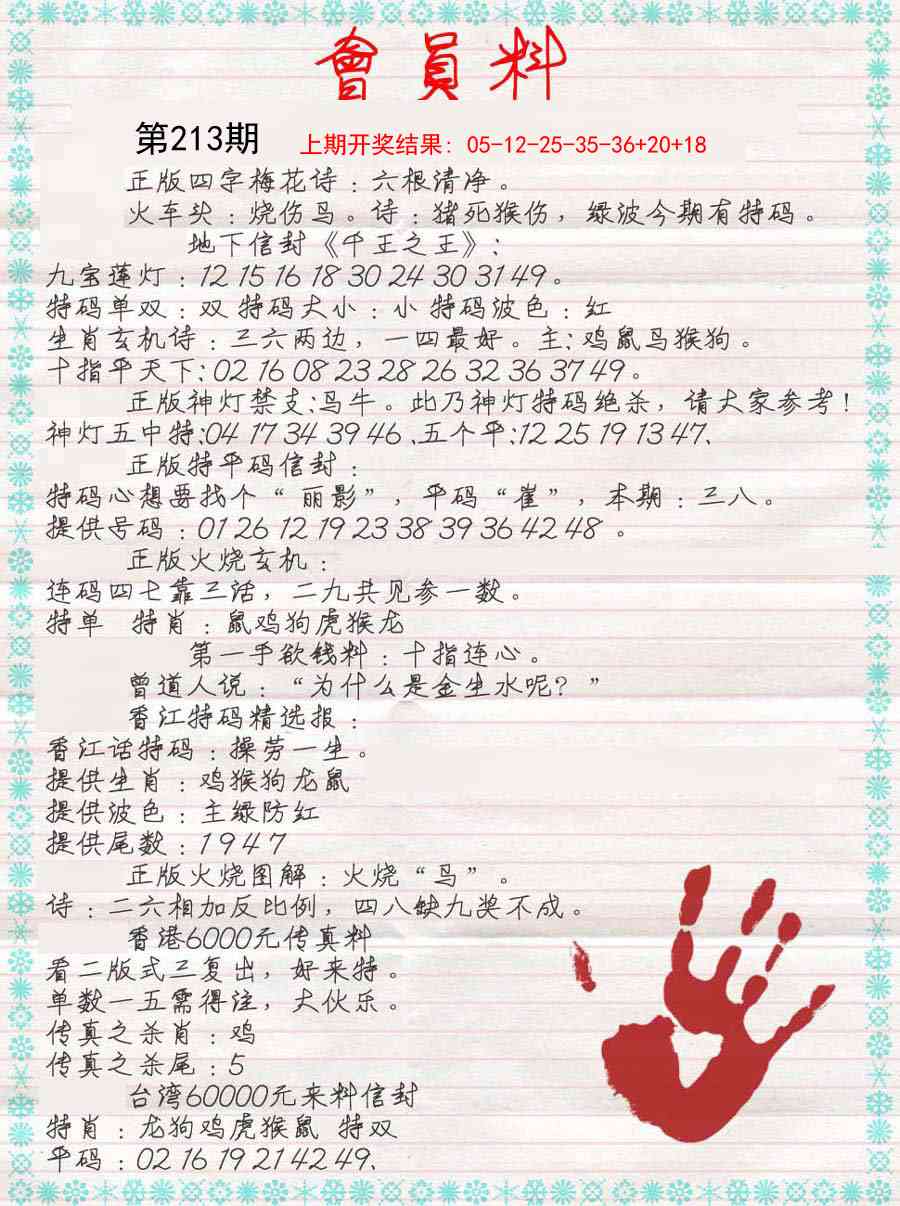 會員料
第213期 上期开奖结果: 05-12-25-35-36+20+18
正版四字梅花诗：六根清净。
火车头：烧伤鸟。诗：猪死猴伤，绿波今期有特码。
地下信封《千王之王》：
九宝莲灯：12 15 16 18 30 24 30 31 49。
特码单双：双 特码大小：小 特码波色：红
生肖玄机诗：三六两边，一四最好。主: 鸡鼠鸟猴狗。
十指平天下: 02 16 08 23 28 26 32 36 37 49。
正版神灯禁支:鸟牛。此乃神灯特码绝杀，请大家参考！
神灯五中特:04 17 34 39 46、五个平:12 25 19 13 47、
正版特平码信封：
特码心想要找个“丽影”，平码“崔”，本期：三八。
提供号码：01 26 12 19 23 38 39 36 42 48 。
正版火烧玄机：
连码四七靠三活，二九共见参一数。
特单 特肖：鼠鸡狗虎猴龙
第一手欲钱料：十指连心。
曾道人说：“为什么是金生水呢？”
香江特码精选报：
香江话特码：操劳一生。
提供生肖：鸡猴狗龙鼠
提供波色：主绿防红
提供尾数：1 9 4 7
正版火烧图解：火烧“鸟”。
诗：二六相加反比例，四八缺九奖不成。
香港6000元传真料
看二版式三复出，好来特。
单数一五需得注，大伙乐。
传真之杀肖：鸡
传真之杀尾：5
台湾60000元来料信封
特肖：龙狗鸡虎猴鼠 特双
平码：02 16 19 21 42 49、